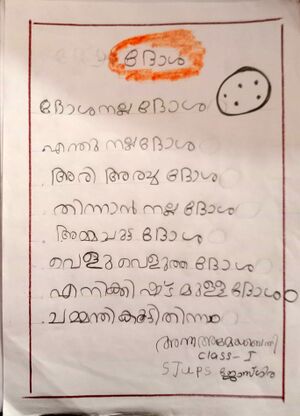 ദോശ
ദോശനല്ല ദോശ
എന്തു നല്ലദോശ
അരി അരച്ച ദോശ
തിന്നാൻ നല്ല ദോശ
അമ്മചുട്ട ദോശ
വെളു വെളുത്ത ദോശ
എനിക്കി ഷ്ട മുള്ള ദോശ
ചമ്മന്തികൂട്ടിതിന്നാ
അന്ന
class-I
SJUPS